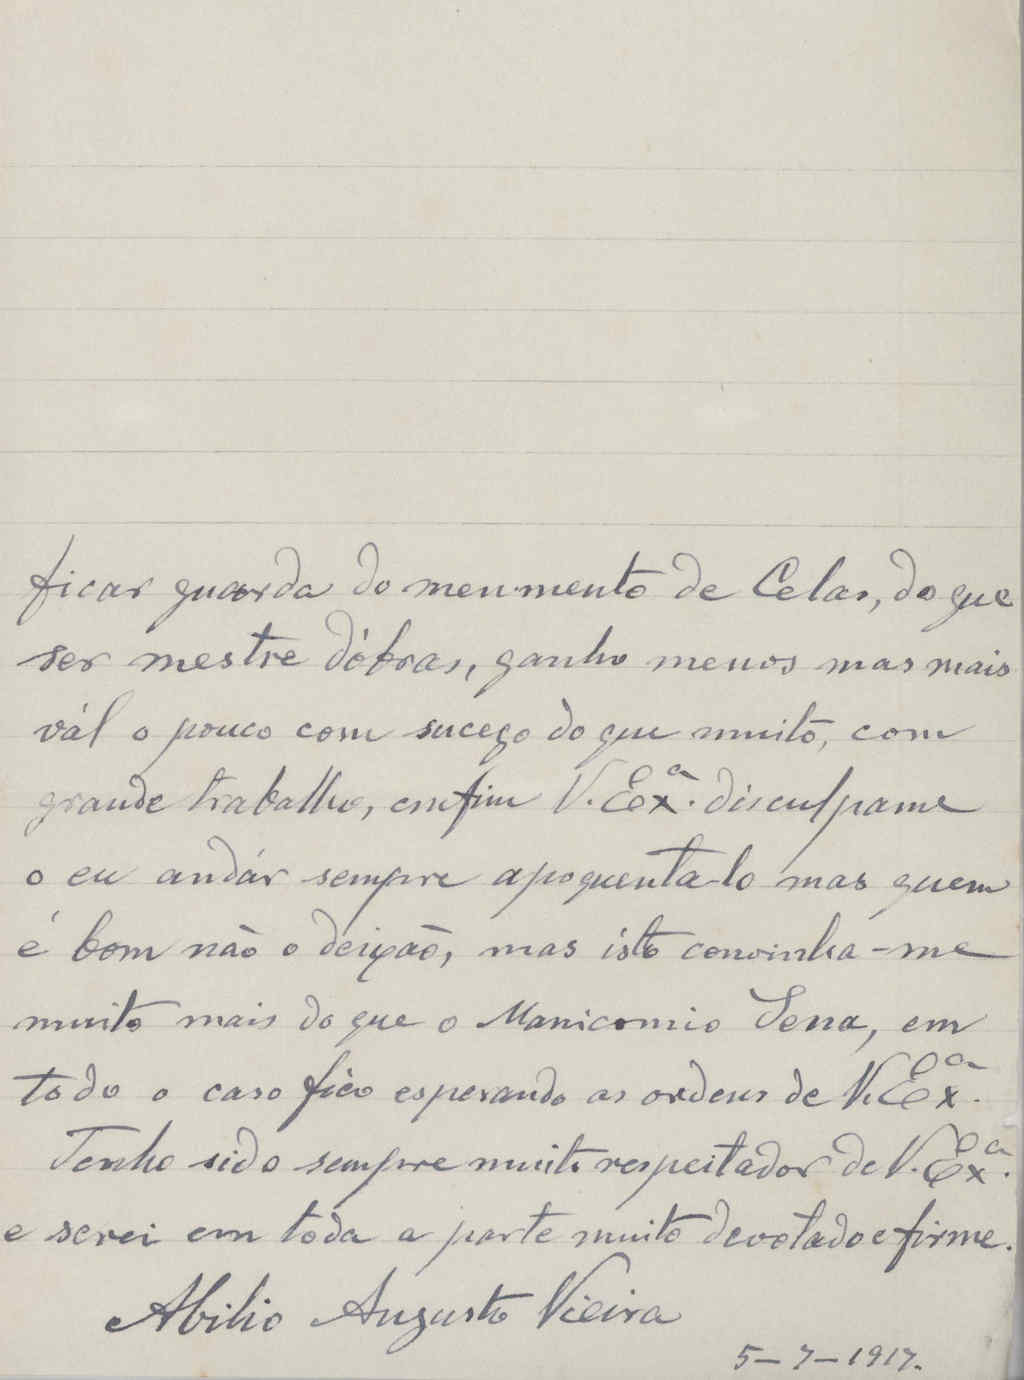 ficar guarda do menumento de Celas, do que
ser mestre dóbras, ganho menos mas mais
vál o pouco com sucego do que muito, com
grande trabalho, emfim V. Exª. disculpame
o eu andár sempre apoquenta-lo mas quem
é bom não o deixão, mas isto convinha-me
muito mais do que o Manicomio Sena, em
todo o caso fico esperando as ordens de V. Exª.
Tenho sido sempre muito respeitador de V. Exª.
e serei em toda a parte muito devotado e firme.
Abilio Augusto Vieira
5-7-1917.